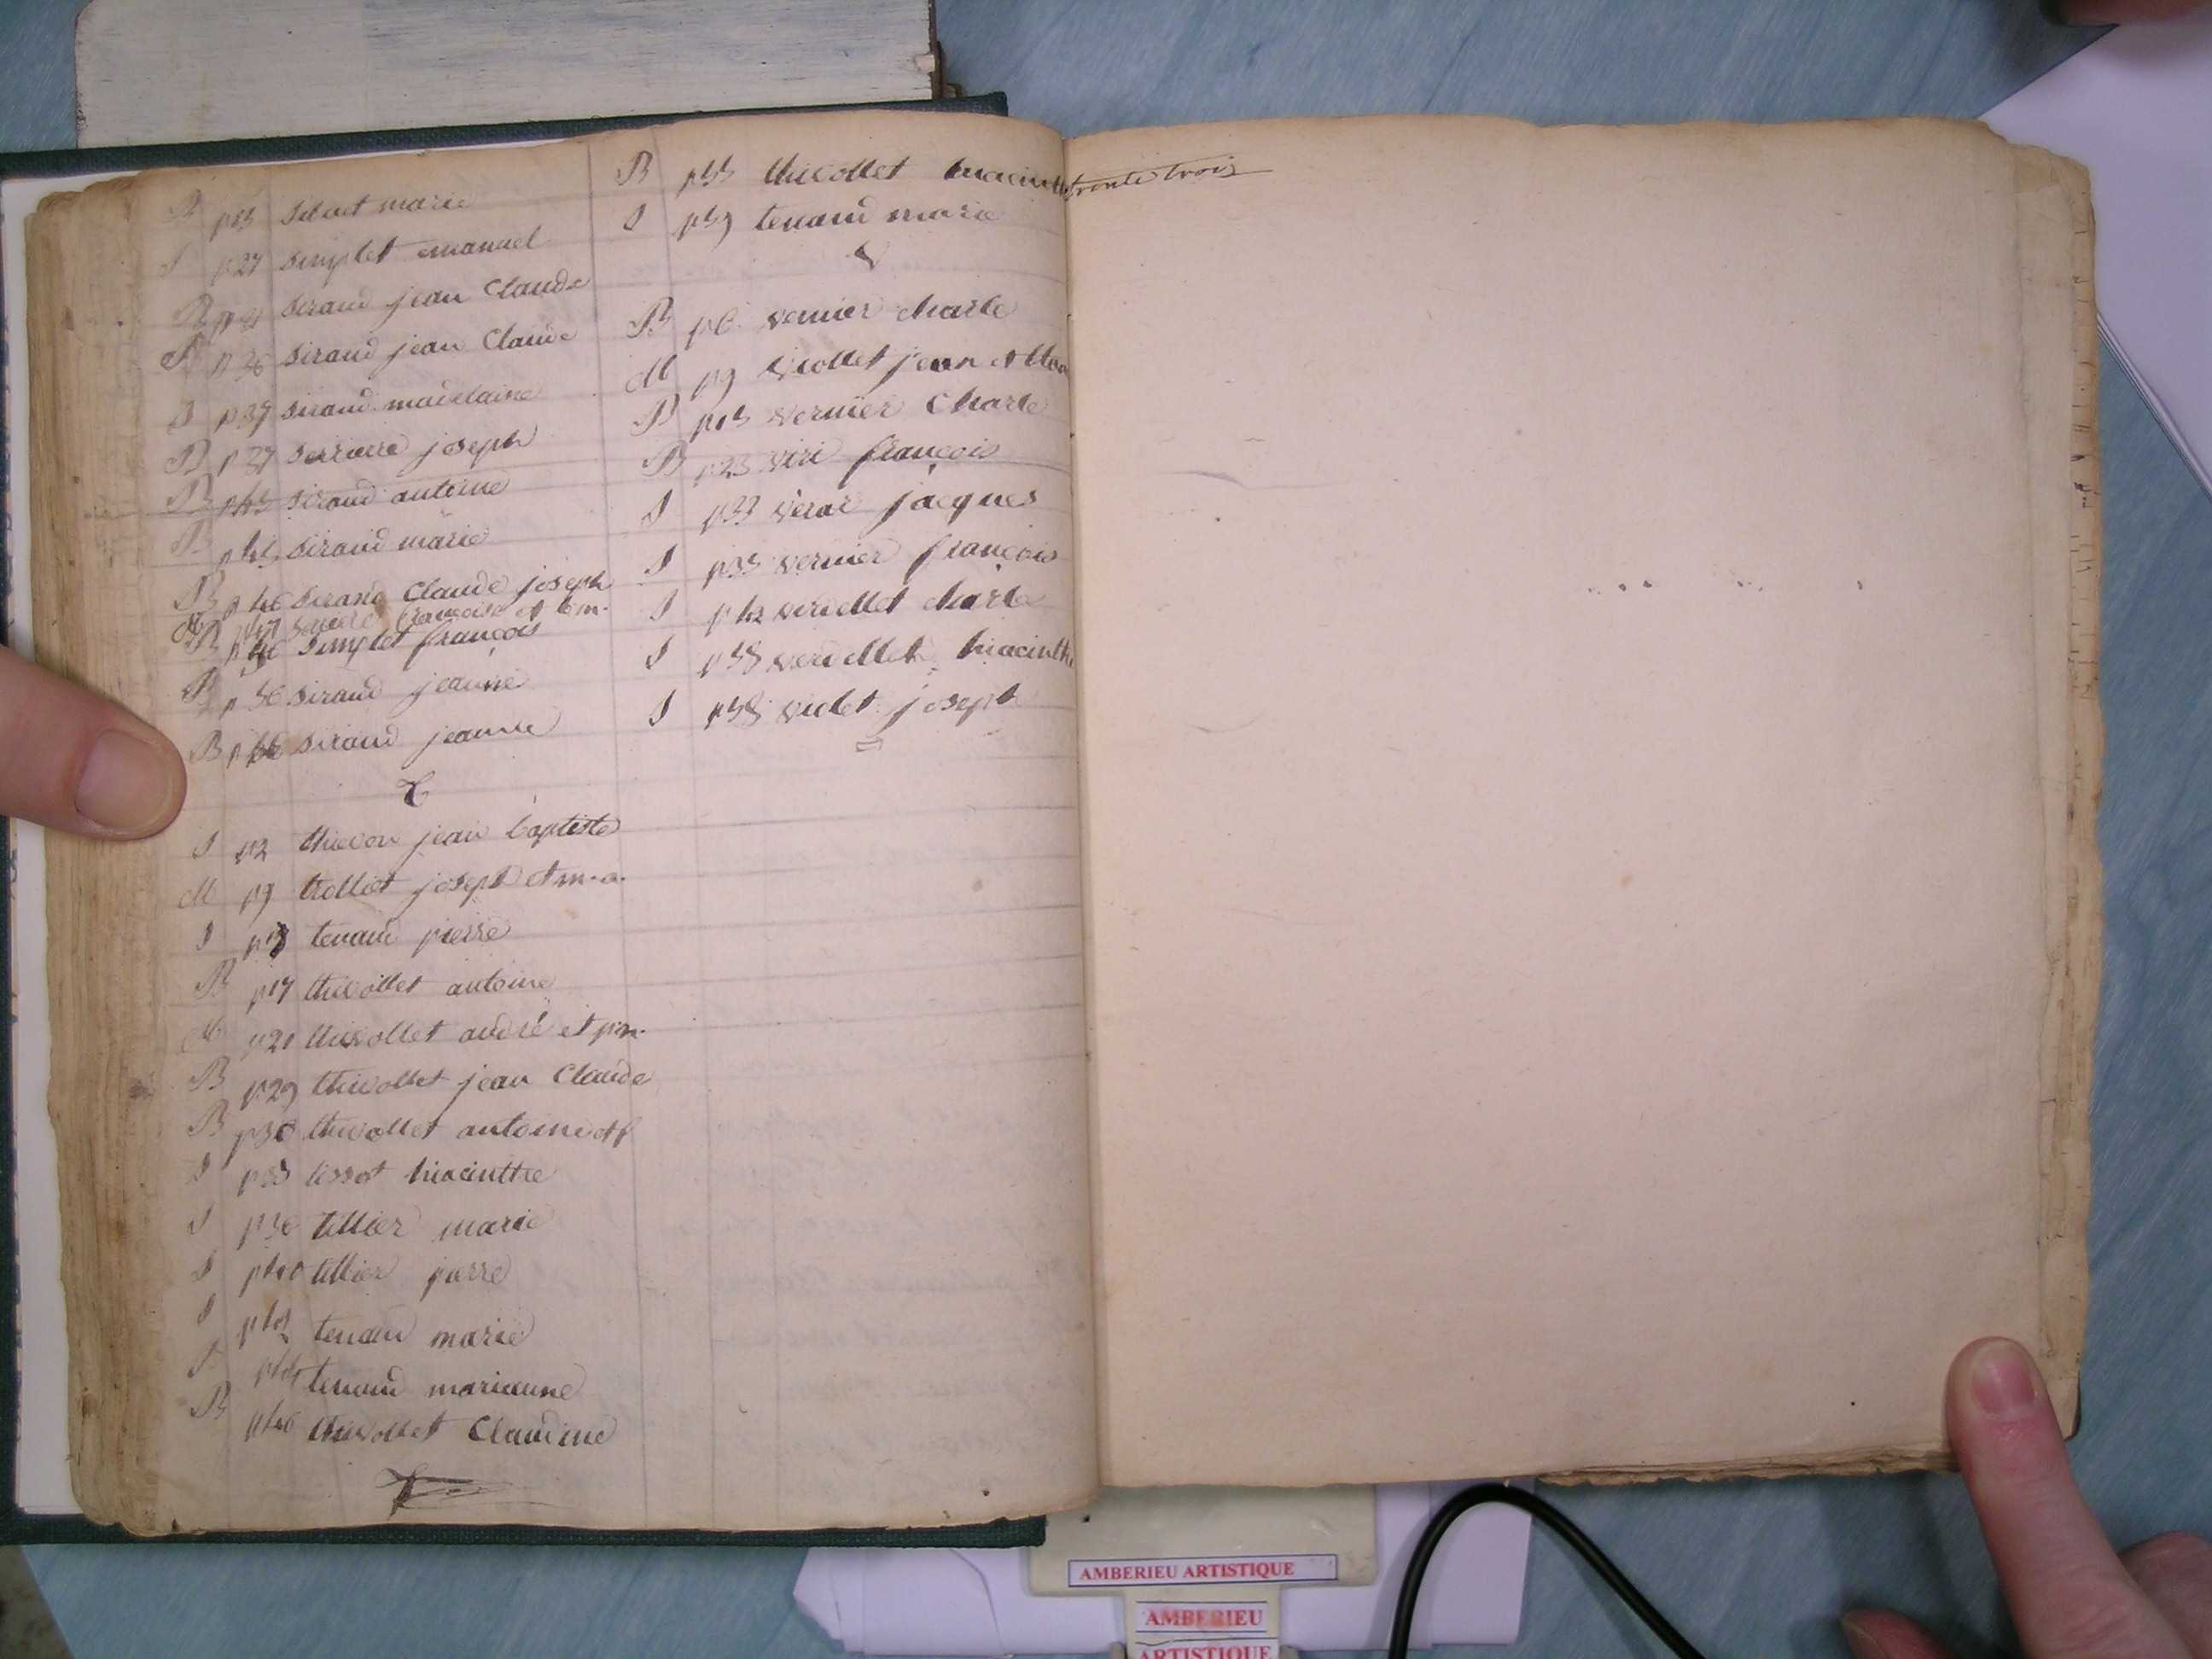 B p marie
S p27 simplet emanuel
B p siraud jean Claude
S p36 siraud jean Claude
S p37 siraud madelaine
B p37 joseph
B p45 siraud antoine
B siraud marie
B p46 siraud Claude joseph
M p47 francoise et
B simplet françois
B p56 siraud jeanne
B siraud jeanne
T
S p2 thievon jean baptiste
M p9 trolliet joseph et m.a.
S tenand pierre
B p17 thivollet antoine
M p21 thivollet andré et
B p29 thivollet jean Claude
B thivollet antoine et f
S tissot hiacinthe
S tillier marie
S p40 tillier pierre
S tenand marie
tenand marianne
B p46 thivollet Claudine
B p55 thivollet hiacinthe
S p59 tenand marie
V
B p6 vernier charle
M p9 viollet jean et
B p15 vernier Charle
B p23 viri françois
S p33 verar jacques
S p35 vernier françois
S p42 charle
S p58 hiacinthe
S p58 violet joseph
trente trois
AMBERIEU ARTISTIQUE
AMBERIEU
ARTISTIQUE